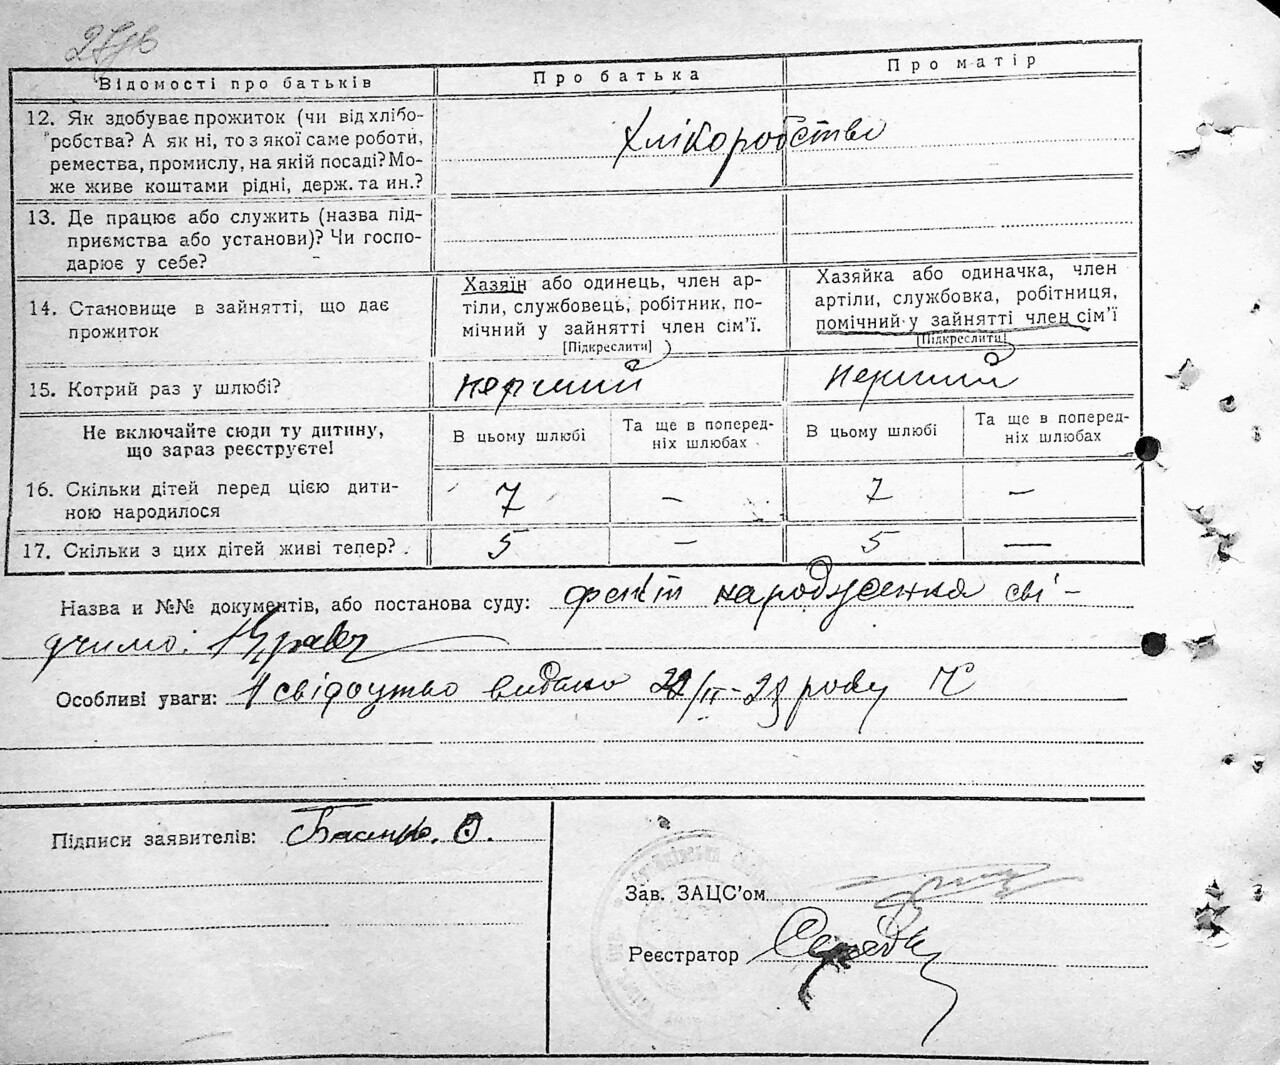 27 зв
Відомості про батьків
Про батька
Про матір
12. Як здобуває прожиток (чи від хлібо-
робства? А як ні, то з якої саме роботи,
ремества, промислу, на якій посаді? Мо-
же живе коштами рідні, держ. та ин.?
Хлікоробство
13. Де працює або служить (назва під-
приємства або установи)? Чи госпо-
дарює у себе?
14. Становище в зайнятті, що дає
прожиток
Хазяїн або одинець, член ар-
тіли, службовець, робітник, по-
мічний у зайнятті член сім’ї.
[Підкреслити]
Хазяйка або одиначка, член
артіли, службовка, робітниця,
помічний у зайнятті член сім’ї
[Підкреслити]
15. Котрий раз у шлюбі?
перший
перший
Не включайте сюди ту дитину,
що зараз реєструєте!
В цьому шлюбі
Та ще в поперед-
ніх шлюбах
В цьому шлюбі
Та ще в поперед-
ніх шлюбах
16. Скільки дітей перед цією дити-
ною народилося
7
—
7
—
17. Скільки з цих дітей живі тепер?
5
—
5
—
Назва и №№ документів, або постанова суду: факт народження сві-
дчимо:
Особливі уваги: свідоцтво видано 22/II-28 року
Підписи заявителів: О.
Зав. ЗАЦС’ом
Реєстратор